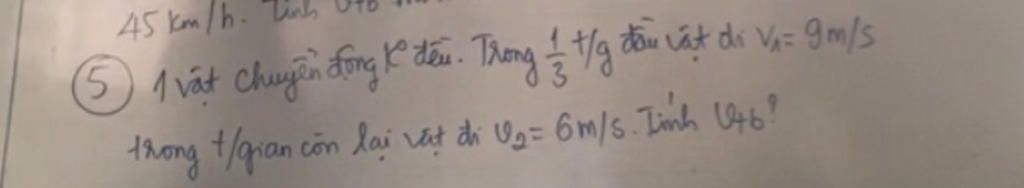 45 km/h. Tính
⑤ 1 vật chuyển động k° đều. Trong 1/3 t/g đầu vật đi v₁= 9m/s
trong t/gian còn lại vật đi v₂= 6m/s. Tính vtb?